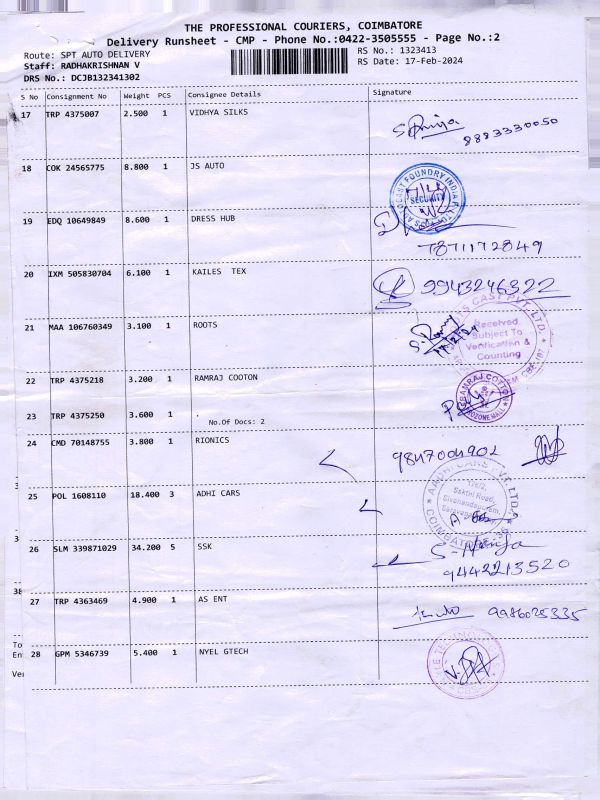 THE PROFESSIONAL COURIERS, COIMBATORE
Delivery Runsheet - CMP - Phone No.:0422-3505555 - Page No.:2
Route: SPT AUTO DELIVERY
RS No.: 1323413
Staff: RADHAKRISHNAN V
RS Date: 17-Feb-2024
DRS No.: DCJB132341302
S No Consignment No Weight PCS Consignee Details Signature
17 TRP 4375007 2.500 1 VIDHYA SILKS
8883330050
18 COK 24565775 8.800 1 JS AUTO
CAST FOUNDRY INDIA SECURITY
19 EDQ 10649849 8.600 1 DRESS HUB
7871172849
20 IXM 505830704 6.100 1 KAILES TEX
9943246322
21 MAA 106760349 3.100 1 ROOTS
CAST PVT. LTD.
Received
Subject To
Verification &
Counting
22 TRP 4375218 3.200 1 RAMRAJ COOTON
RAMRAJ COTTON
23 TRP 4375250 3.600 1
No.Of Docs: 2
24 CMD 70148755 3.800 1 RIONICS
9847004902
25 POL 1608110 18.400 3 ADHI CARS
Sakthi Road,
Sivanandapuram,
COIMBATORE
26 SLM 339871029 34.200 5 SSK
9442213520
27 TRP 4363469 4.900 1 AS ENT
9986025335
28 GPM 5346739 5.400 1 NYEL GTECH